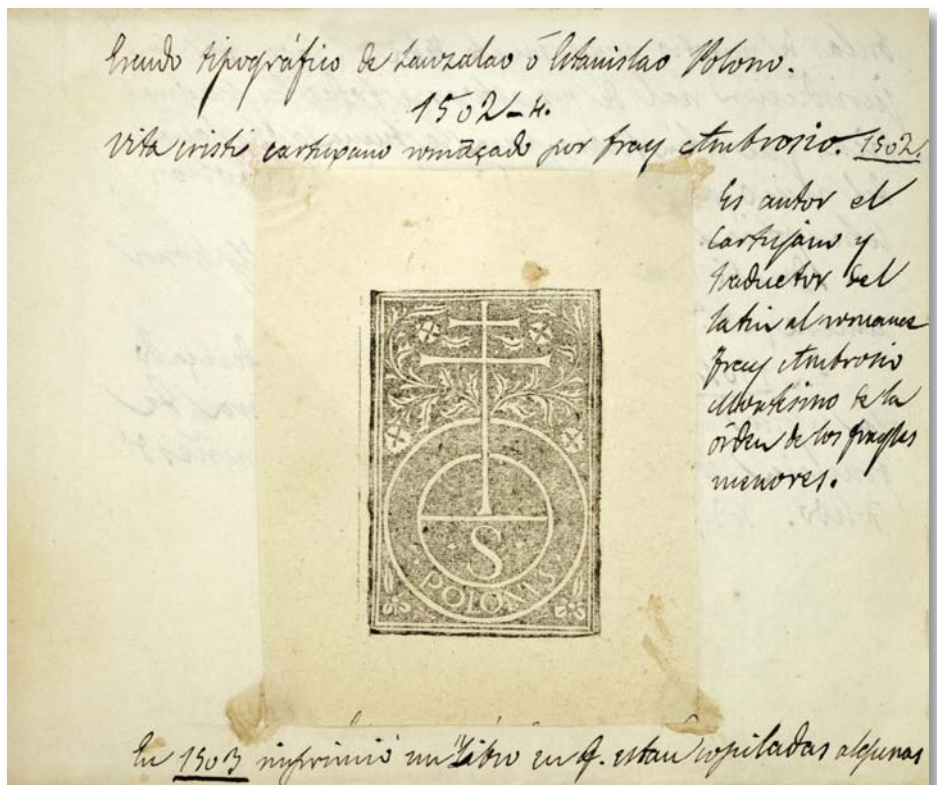 Escudo tipográfico de Lanzalao ó Estanislao Polono.
1502-4.
Vita cristi cartuxano romãçado por fray Ambrosio. 1502.
Es autor el
cartujano y
traductor del
latin al romance
fray Ambrosio
Montesino de la
órden de los frayles
menores.
S
POLONUS
En 1503 imprimió un Libro en q. estan copiladas algunas